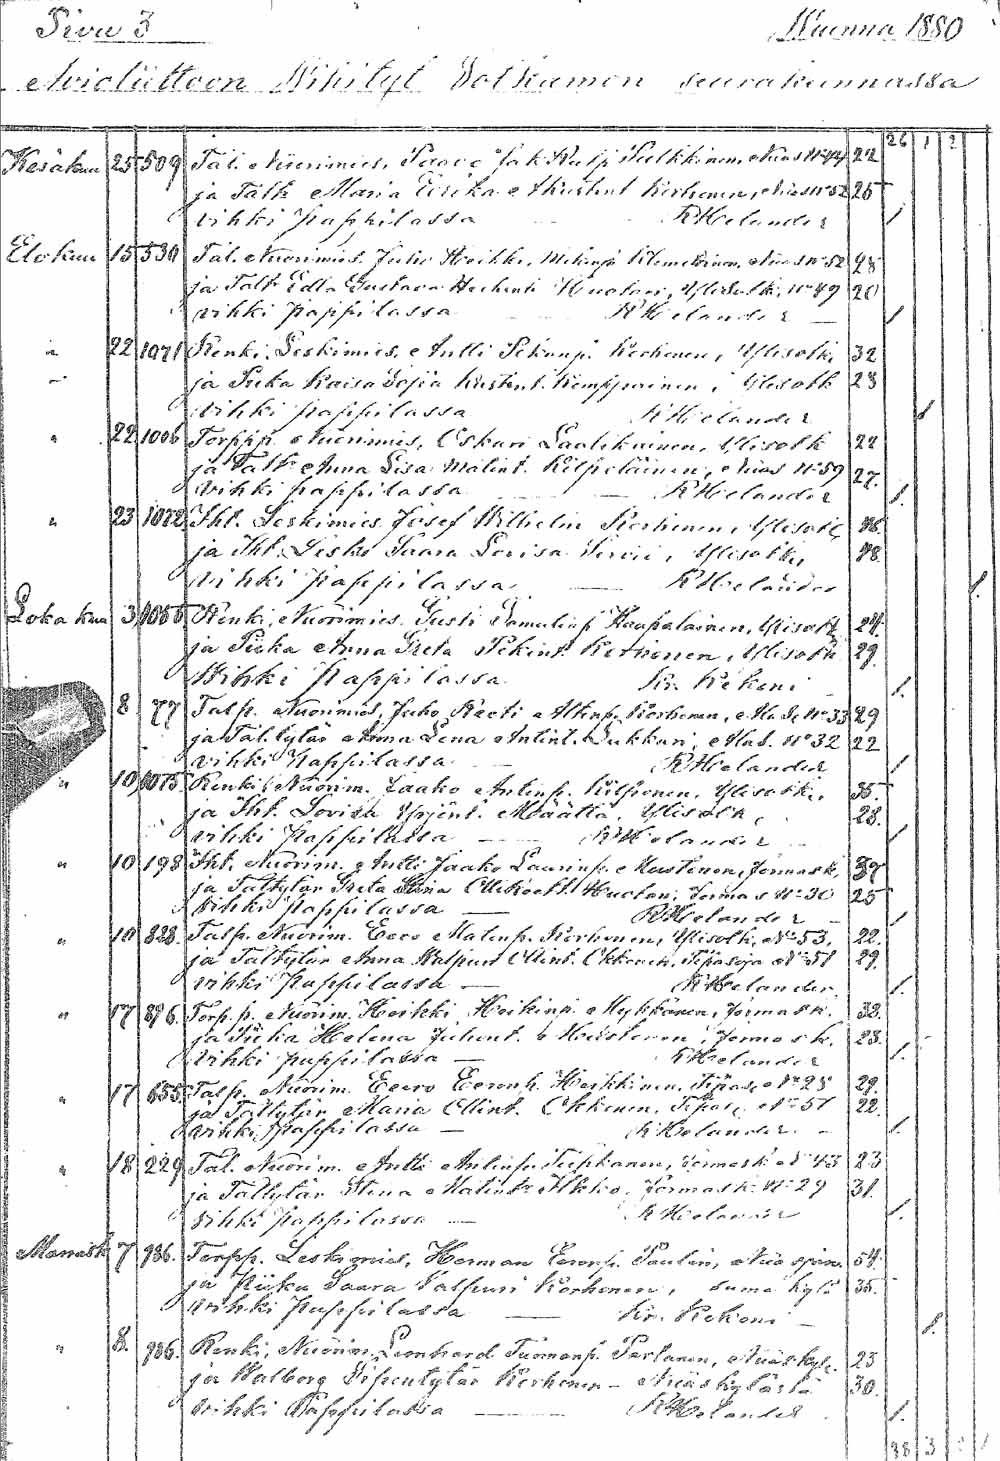 Sivu 3 Wuonna 1880
Avioliittoon Wihityt Sotkamon seurakunnassa
26 1 2
Kesäkuu 25 509 Tal. Nuorimies, Paavo Pulkkinen, Nuas No 44 22
ja Talt. Maria Erika Korhonen, Nuas No 52 25
vihki pappilassa — R Helander 1
Elokuu 15 530 Tal. Nuorimies, Juho Heikki Klemettinen, Nuas No 52 28
ja Talt Edla Gustava Huotari, Ylisotk, No 49 20
vihki pappilassa R Helander — 1
" 22 1071 Renki, Leskimies, Antti Pekanp. Korhonen, Ylisotk, 32
ja Piika Kaisa Sofia Kemppainen, Ylisotk 23
vihki pappilassa R Helander 1
" 22 1006 Torpp. Nuorimies, Oskari Laatikainen, Ylisotk 22
ja Talt Anna Lisa Matint. Kilpeläinen, Nuas No 59 27.
vihki pappilassa — R Helander 1.
" 23 1072 Iht. Leskimies Josef Wilhelm Korhonen, Ylisotk,
ja Iht. Leski Saara Lovisa, Ylisotk,
vihki pappilassa — R Helander 1
Lokakuu 3 Renki, Nuorimies, Gusti Samulinp Haapalainen, Ylisotk 24.
ja Piika Anna Greta Pekint. Korhonen, Ylisotk 29.
Wihki Pappilassa Kr. Rekoni — 1.
8 77 Talp. Nuorimies, Juho Antinp. Korhonen, Ala S. No 33 29
ja Tal.tytär Anna Lena Antint. Lukkari, Alas. No 32 22
vihki pappilassa — R Helander 1
" 10 1075 Renki, Nuorim. Jaako Antinp. Kilponen, Ylisotk, 35.
ja Iht. Lovisa Yrjönt. Määttä, Ylisotk, 28.
vihki pappilassa — R Helander 1
" 10 198 Iht. Nuorim. Antti Jaako Laurinp. Mustonen, Jormask,
ja Taltytär Greta Stina Huotari, Jormas No 30 25
vihki pappilassa — R Helander — 1
" 10 828. Talp. Nuorim. Eero Matinp. Korhonen, Ylisotk, No 53, 22.
ja Taltytär Anna Walpuri Ollint. Okkonen, Tipasoja No 51 29.
vihki pappilassa — R Helander. 1.
" 17 896. Torp.p. Nuorim. Heikki Heikinp. Mykkänen, Jormask. 33.
ja Piika Helena Juhont. Mustonen, Jormask. 23.
vihki pappilassa — R Helander 1.
" 17 655 Talp. Nuorim. Eero Eeronp. Heikkinen, Tipas, No 28 29.
ja Taltytär Maria Ollint. Okkonen, Tipas, No 51 22.
vihki pappilassa — R Helander. — 1.
" 18 229 Tal. Nuorim. Antti Antinp. Piipkanen, Jormask No 43 23
ja Taltytär Stina Matint. Hokko, Jormask. No 29 31.
vihki pappilassa — R Helander 1.
Marrask 7 986. Torpp. Leskimies, Herman Eeronp. Paulin, 54.
ja Piika Saara Walpuri Korhonen, sama kylä 35.
vihki pappilassa — Kr. Rekoni — 1.
" 8. 986. Renki, Nuorim. Leonhard Tuomanp. Partanen, Nuaskyl. 23
ja Walborg Korhonen — Nuaskylästä 30.
vihki Pappilassa — R Helander. 1.
38 3 1